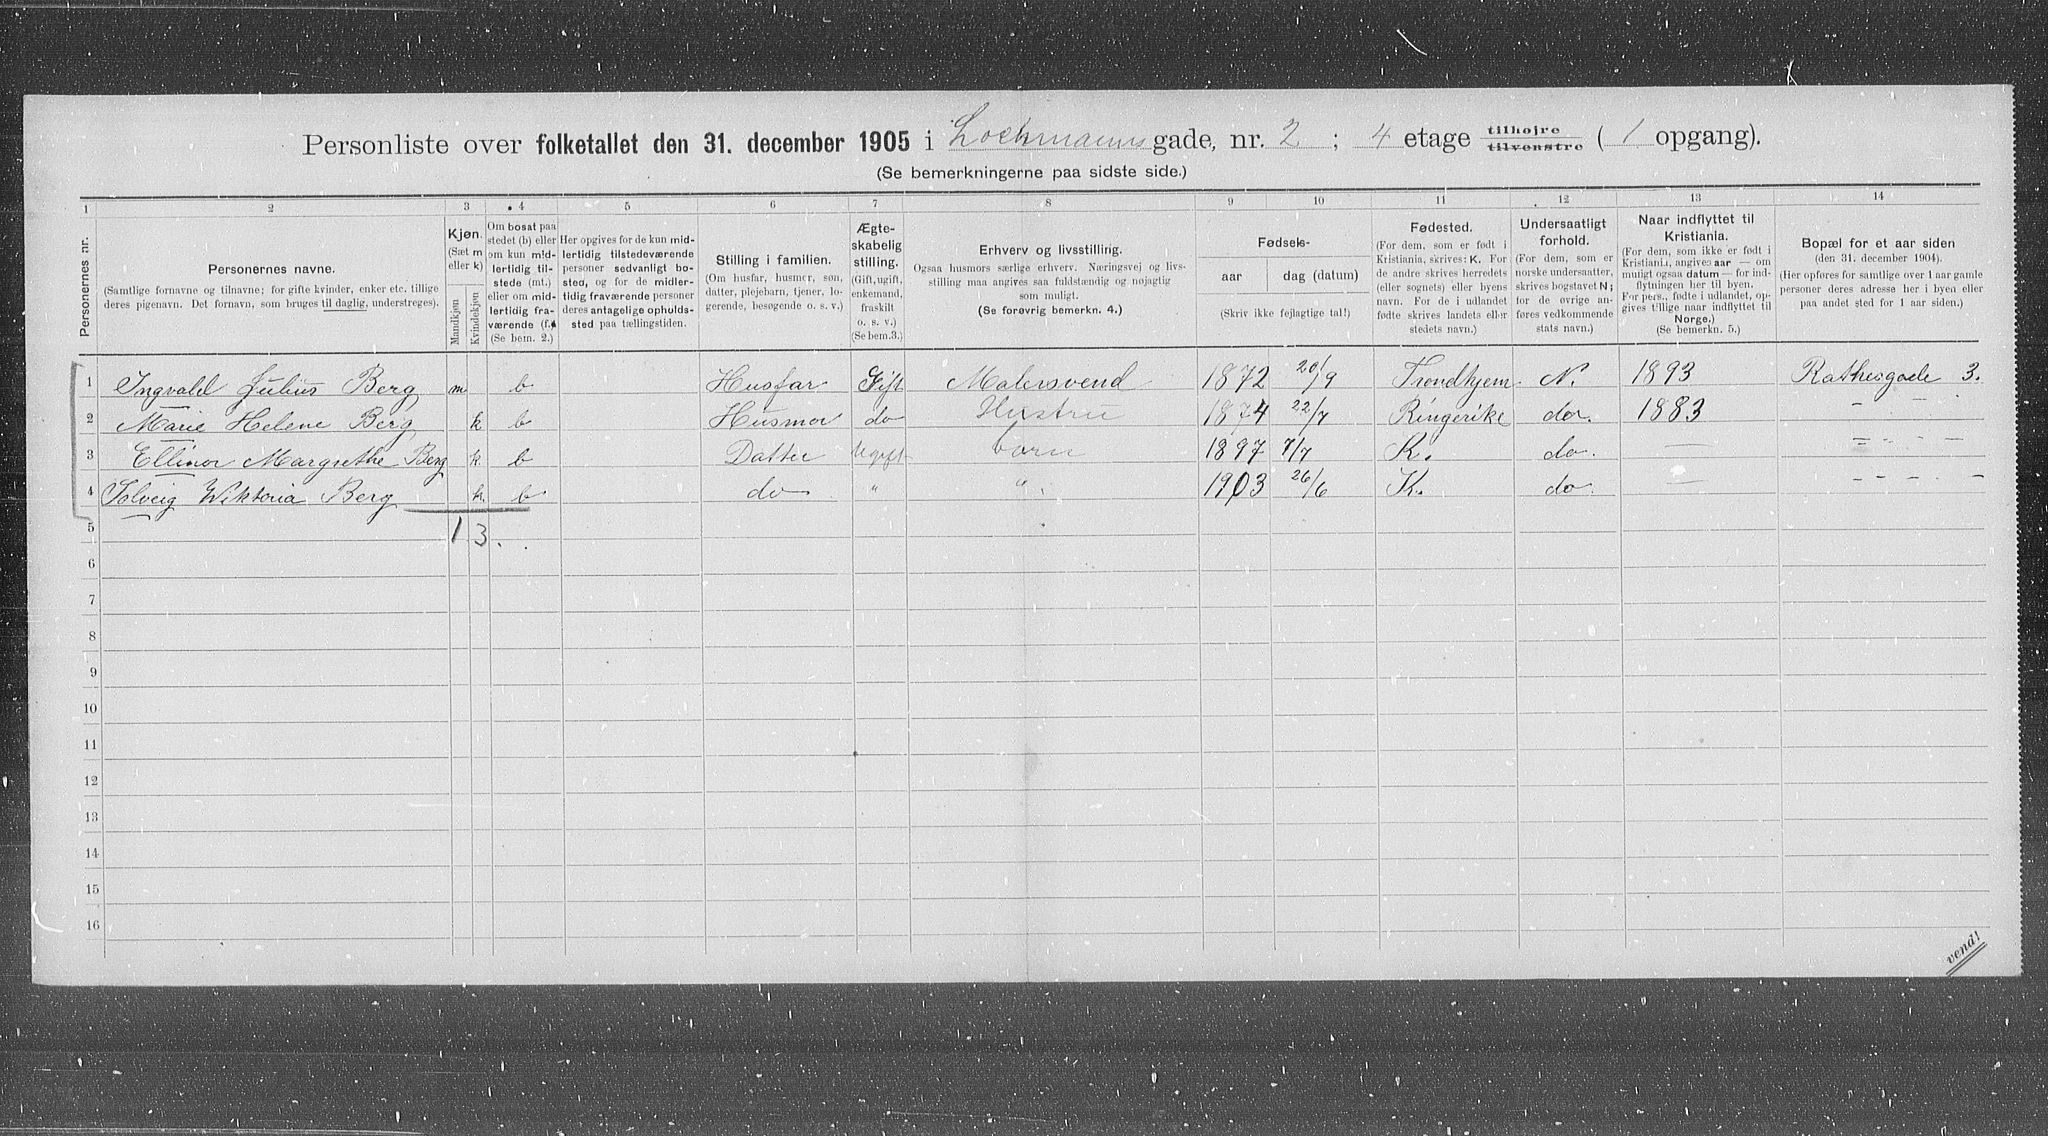 Personliste over folketallet den 31. december 1905 i Lochmannsgade, nr. 2 ; 4 etage tilhøjre tilvenstre ( 1 opgang).
(Se bemerkningerne paa sidste side.)
1 2 3 4 5 6 7 8 9 10 11 12 13 14
Personernes nr.
Personernes navne.
(Samtlige fornavne og tilnavne; for gifte kvinder, enker etc. tillige
deres pigenavn. Det fornavn, som bruges til daglig, understreges).
Kjøn.
(Sæt m
eller k)
Mandkjøn
Kvindekjøn
Om bosat paa
stedet (b) eller
om kun mid-
lertidig til-
stede (mt.)
eller om mid-
lertidig fra-
værende (f.
(Se bem. 2.)
Her opgives for de kun mid-
lertidig tilstedeværende
personer sedvanligt bo-
sted, og for de midler-
tidig fraværende personer
deres antagelige opholds-
sted paa tællingstiden.
Stilling i familien.
(Om husfar, husmor, søn,
datter, plejebarn, tjener, lo-
gerende, besøgende o. s. v.)
Ægte-
skabelig
stilling.
(Gift, ugift,
enkemand,
fraskilt
o. s. v.)
(Se bem.3.)
Erhverv og livsstilling.
Ogsaa husmors særlige erhverv. Næringsvej og livs-
stilling maa angives saa fuldstændig og nøjagtig
som muligt.
(Se forøvrig bemerkn. 4.)
Fødsels-
aar
dag (datum)
(Skriv ikke fejlagtige tal!)
Fødested.
(For dem, som er født i
Kristiania, skrives: K. For
de andre skrives herredets
(eller sognets) eller byens
navn. For de i udlandet
fødte skrives landets eller
stedets navn.)
Undersaatligt
forhold.
(For dem, som er
norske undersaatter,
skrives bogstavet N;
for de øvrige an-
føres vedkommende
stats navn.)
Naar indflyttet til
Kristiania.
(For dem, som ikke er født i
Kristiani., angives aar — om
muligt ogsaa datum — for ind-
flytningen her til byen.
For pers., fødte i udlandet, op-
gives tillige naar indflyttet til
Norge.)
(Se bemerkn. 5.)
Bopæl for et aar siden
(den 31. december 1904).
(Her opføres for samtlige over 1 aar gamle
personer deres adresse her i byen eller
paa andet sted for 1 aar siden.)
1 Ingvald Julius Berg m b Husfar Gift Malersvend 1872 20/9 Trondhjem N. 1893 Rathesgade 3.
2 Marie Helene Berg k b Husmor do Hustru 1874 22/7 Ringerike do. 1883 " - -
3 Ellinor Margrethe Berg k b Datter Ugift barn 1897 7/7 K. do. — " - " -
4 Solveig Wiktoria Berg k b do " " 1903 26/6 K. do. — - - - -
5 1 3.
6
7
8
9
10
11
12
13
14
15
16
vend!